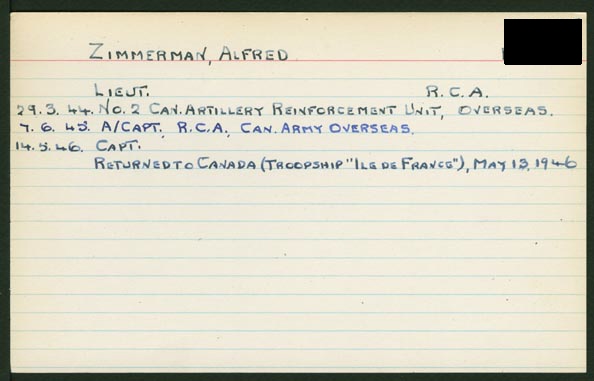 ZIMMERMAN, ALFRED
LIEUT. R.C.A.
29.3.44. NO. 2 CAN. ARTILLERY REINFORCEMENT UNIT, OVERSEAS.
7.6.45. A/CAPT. R.C.A. CAN. ARMY OVERSEAS.
14.5.46. CAPT.
RETURNED TO CANADA (TROOPSHIP "ILE DE FRANCE"), MAY 13, 1946